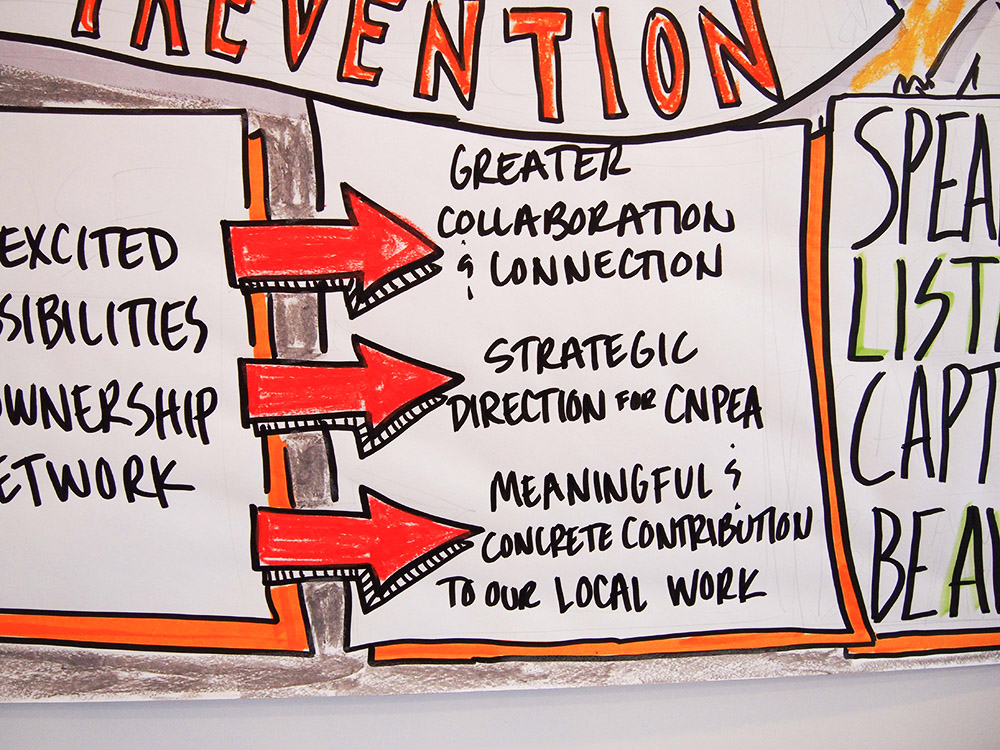 PREVENTION
EXCITED
SIBILITIES
OWNERSHIP
ETWORK
GREATER
COLLABORATION
& CONNECTION
STRATEGIC
DIRECTION FOR CNPEA
MEANINGFUL &
CONCRETE CONTRIBUTION
TO OUR LOCAL WORK
SPEA
LIST
CAPT
BE A